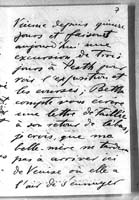 7
Vienne depuis quinze
jours et faisant
aujourd'hui une
excursion de trois
jours à Pesth pour
voir l'exposition et
les courses; Berthe
compte vous écrire
une lettre de
à son retour de
je crois, que ma
belle mère ne tardera
pas à arriver ici
de Venise où elle
a l'air de s'ennuyer